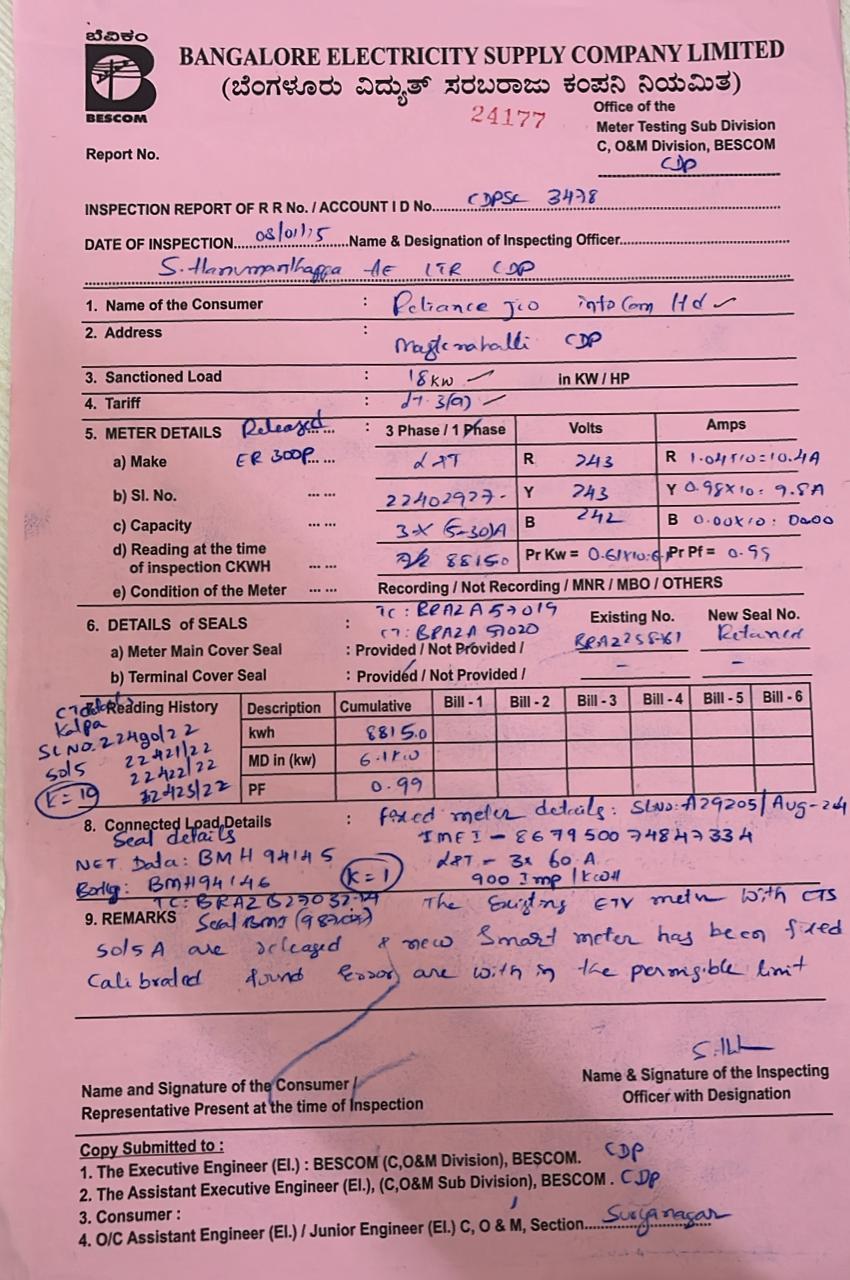 ಬೆವಿಕಂ
BESCOM
BANGALORE ELECTRICITY SUPPLY COMPANY LIMITED
(ಬೆಂಗಳೂರು ವಿದ್ಯುತ್ ಸರಬರಾಜು ಕಂಪನಿ ನಿಯಮಿತ)
24177
Office of the
Meter Testing Sub Division
C, O&M Division, BESCOM
CDP
Report No.
INSPECTION REPORT OF R R No. / ACCOUNT I D No. CDPSC 3478
DATE OF INSPECTION 08/01/15 Name & Designation of Inspecting Officer
S. Hanumanthappa AE LTR CDP
1. Name of the Consumer : Reliance Jio infocom ltd
2. Address : CDP
3. Sanctioned Load : 18 KW in KW / HP
4. Tariff : LT-3(a)
5. METER DETAILS Released : 3 Phase / 1 Phase Volts Amps
a) Make ER 300P L&T R 243 R 1.04x10=10.4A
b) Sl. No. 22402927 Y 243 Y 0.98x10= 9.8A
c) Capacity 3-X (5-30)A B 242 B 0.00x10: 0000
d) Reading at the time of inspection CKWH 8815.0 Pr Kw = 0.61x10= Pr Pf = 0.99
e) Condition of the Meter Recording / Not Recording / MNR / MBO / OTHERS
6. DETAILS of SEALS : TC: BRA2A57019 Existing No. New Seal No.
a) Meter Main Cover Seal : Provided / Not Provided / Retained
b) Terminal Cover Seal : Provided / Not Provided / - -
7. Reading History Description Cumulative Bill - 1 Bill - 2 Bill - 3 Bill - 4 Bill - 5 Bill - 6
Kalpa
Sl NO. 22420/22
50/5 22421/22
22422/22
K=10 22423/22
kwh 8815.0
MD in (kw) 6.1KW
PF 0.99
8. Connected Load Details : fixed meter details: Sl No: A29205/Aug-24
Seal details IMEI - 867950074847334
NET Data: BMH 94145 L&T - 3x 60 A
Body: BMH94146 K=1 900 Imp/kwH
9. REMARKS The Existing ETV meter with CTS
50/5 A are released & new Smart meter has been fixed
Calibrated found Error are with in the permisible limit
Name and Signature of the Consumer /
Representative Present at the time of Inspection
Name & Signature of the Inspecting
Officer with Designation
Copy Submitted to :
1. The Executive Engineer (El.) : BESCOM (C,O&M Division), BESCOM. CDP
2. The Assistant Executive Engineer (El.), (C,O&M Sub Division), BESCOM . CDP
3. Consumer :
4. O/C Assistant Engineer (El.) / Junior Engineer (El.) C, O & M, Section Suryanagar